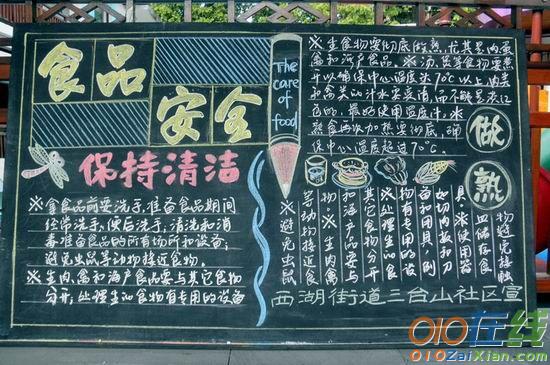 食品
安全
The
care
of
food
保持清洁
※拿食品前要洗手,准备食品期间
经常洗手,便后洗手,清洗和消
毒准备食品的所有场所和设备;
避免虫鼠等动物接近食物。
※生肉、禽和海产食品要与其它食物
分开,处理生的食物有专用的设备
※生食物要彻底的熟,尤其是肉蛋
禽和海产食品。※汤、煲等食物要煮
开以确保中心温度达70℃以上,肉类
和禽类的汁水要变清,而不能是淡红
色的,最好使用温度计。※
熟食再次加热要彻底,确
保中心温度超过70℃。
做
熟
物避免接触
血储存食
具。※使用器
如切肉刀和
备和用具。
物有专用的设
※处理生的食
其它食物分开
和海产品要与
物。※生肉、禽
等动物接近食
※避免虫鼠
西湖街道三台山社区宣
010在线
010ZaiXian.com